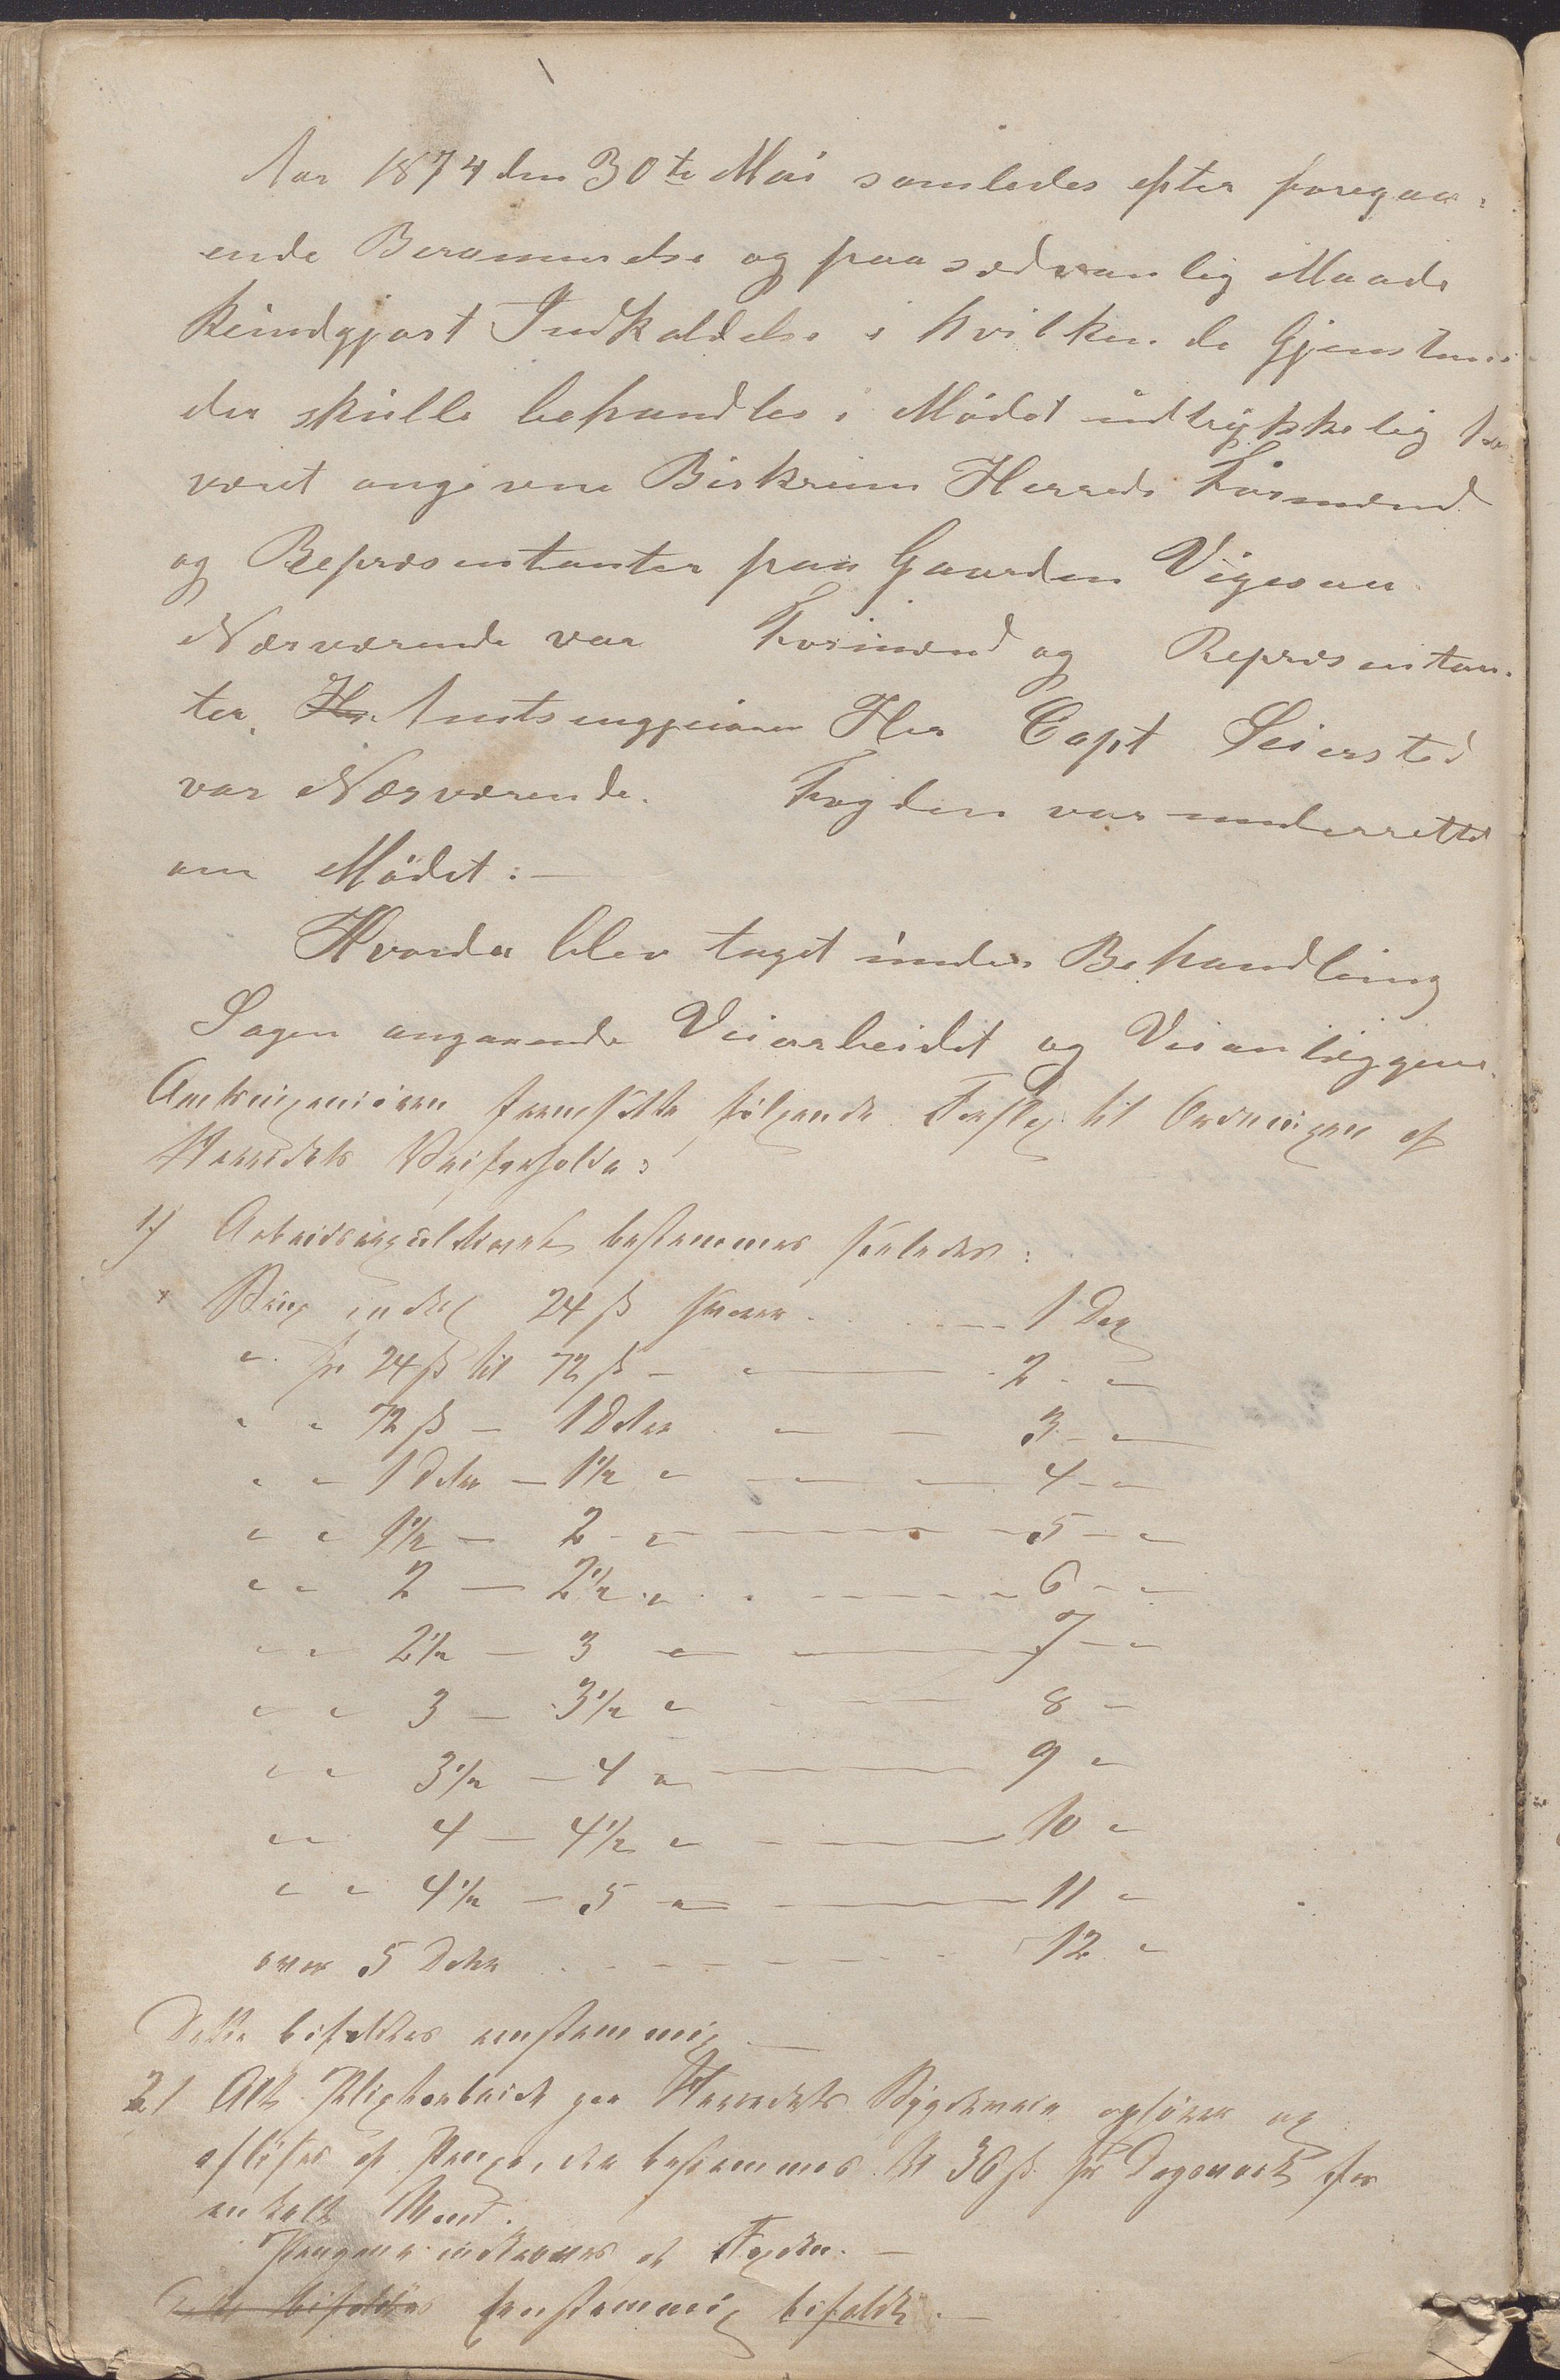 Aar 1874 den 30te Mai samledes efter foregaa-
ende Berammelse og paa sædvanlig Maade
kundgjort Indkaldelse i hvilken de Gjenstan-
der skulle behandles i Mødet udtrykkelig har
været angivne Birkrem Herreds Formænd
og Repræsentanter paa Gaarden Vigesaa
Nærværende var Formænd og Repræsentan-
ter, Hr. Amtsingeniører Her Capt Seiersted
var Nærværende. Fogden var underrettet
om Mødet:—
Hvorda blev taget under Behandling
Sagen angaaende Veiarbeidet og Veianlæggene.
Amtsingeniøren fremsatte følgende Forslag til Ordningen af
Herredets Veiforholde:
1) Arbeidsreguleringen bestemmes saaledes:
Brug indtil 24 ß Skever . . . 1 Dag
" fr 24 ß til 72 ß — " — 2 "
" " 72 ß — 1 Daler — — 3 "
" " 1 Daler — 1 1/2 " — " — 4 "
" " 1 1/2 — 2 " — — 5 "
" " 2 — 2 1/2 " — 6 "
" " 2 1/2 — 3 " — 7 "
" " 3 — 3 1/2 " — 8 —
" " 3 1/2 — 4 " — 9 "
" " 4 — 4 1/2 " — 10 "
" " 4 1/2 — 5 " — 11 "
over 5 Daler . . . 12 "
Dette bifaldtes eenstemmig.—
2) Alt Pligtarbeide paa Herredets Bygdeveie ophører og
afløses af Penge, der bestemmes til 36 ß pr Dagsværk for
enkelt Mand.
Pengene indkræves af Fogden.—
Dette bifaldtes Eenstemmig bifaldt.—